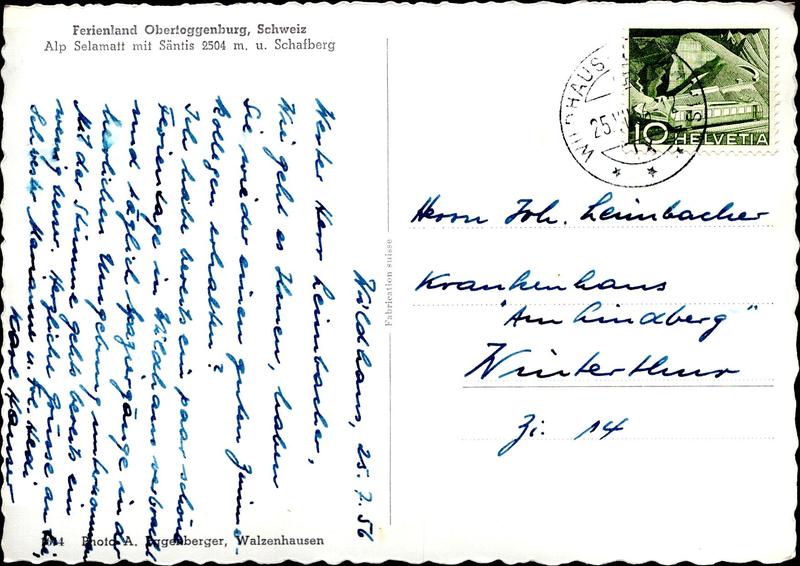 Ferienland Obertoggenburg, Schweiz
Alp Selamatt mit Säntis 2504 m. u. Schafberg
Wildhaus, 25.7.56
Werter Herr Leimbacher,
Wie geht es Ihnen, haben
Sie wieder einen guten Zimmer-
kollegen erhalten?
Ich habe bereits ein paar schöne
Ferientage in Wildhaus verbracht
und täglich Spaziergänge in der
herrlichen Umgebung unternommen
Mit der Stimme geht's bereits ein
wenig besser. Herzliche Grüsse an Sie,
Schwester Marianne u. Frl. Hedi
Karl Hauser
Photo A. Eggenberger, Walzenhausen
Fabrication suisse
WILDHAUS
25.VII.56
10 HELVETIA
Herrn Joh. Leimbacher
Krankenhaus
"Am Lindberg"
Winterthur
Zi. 14